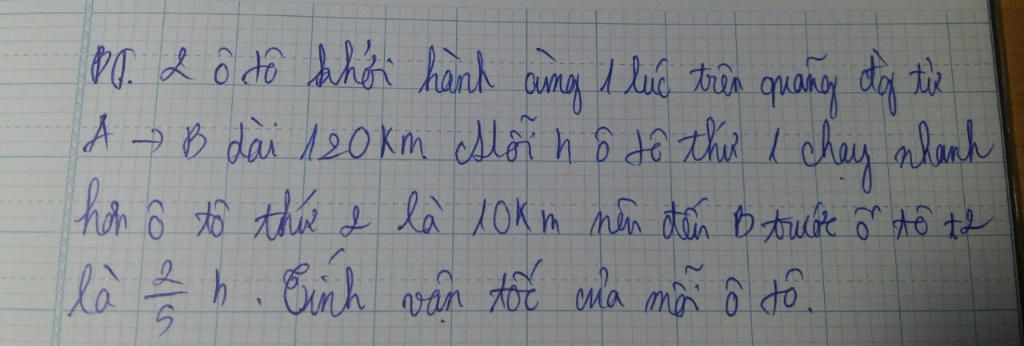 BT. 2 ô tô khởi hành cùng 1 lúc trên quãng đg từ
A → B dài 120km Mỗi h ô tô thứ 1 chạy nhanh
hơn ô tô thứ 2 là 10Km nên đến B trước ô tô t2
là 2/5 h. Tính vận tốc của mỗi ô tô.